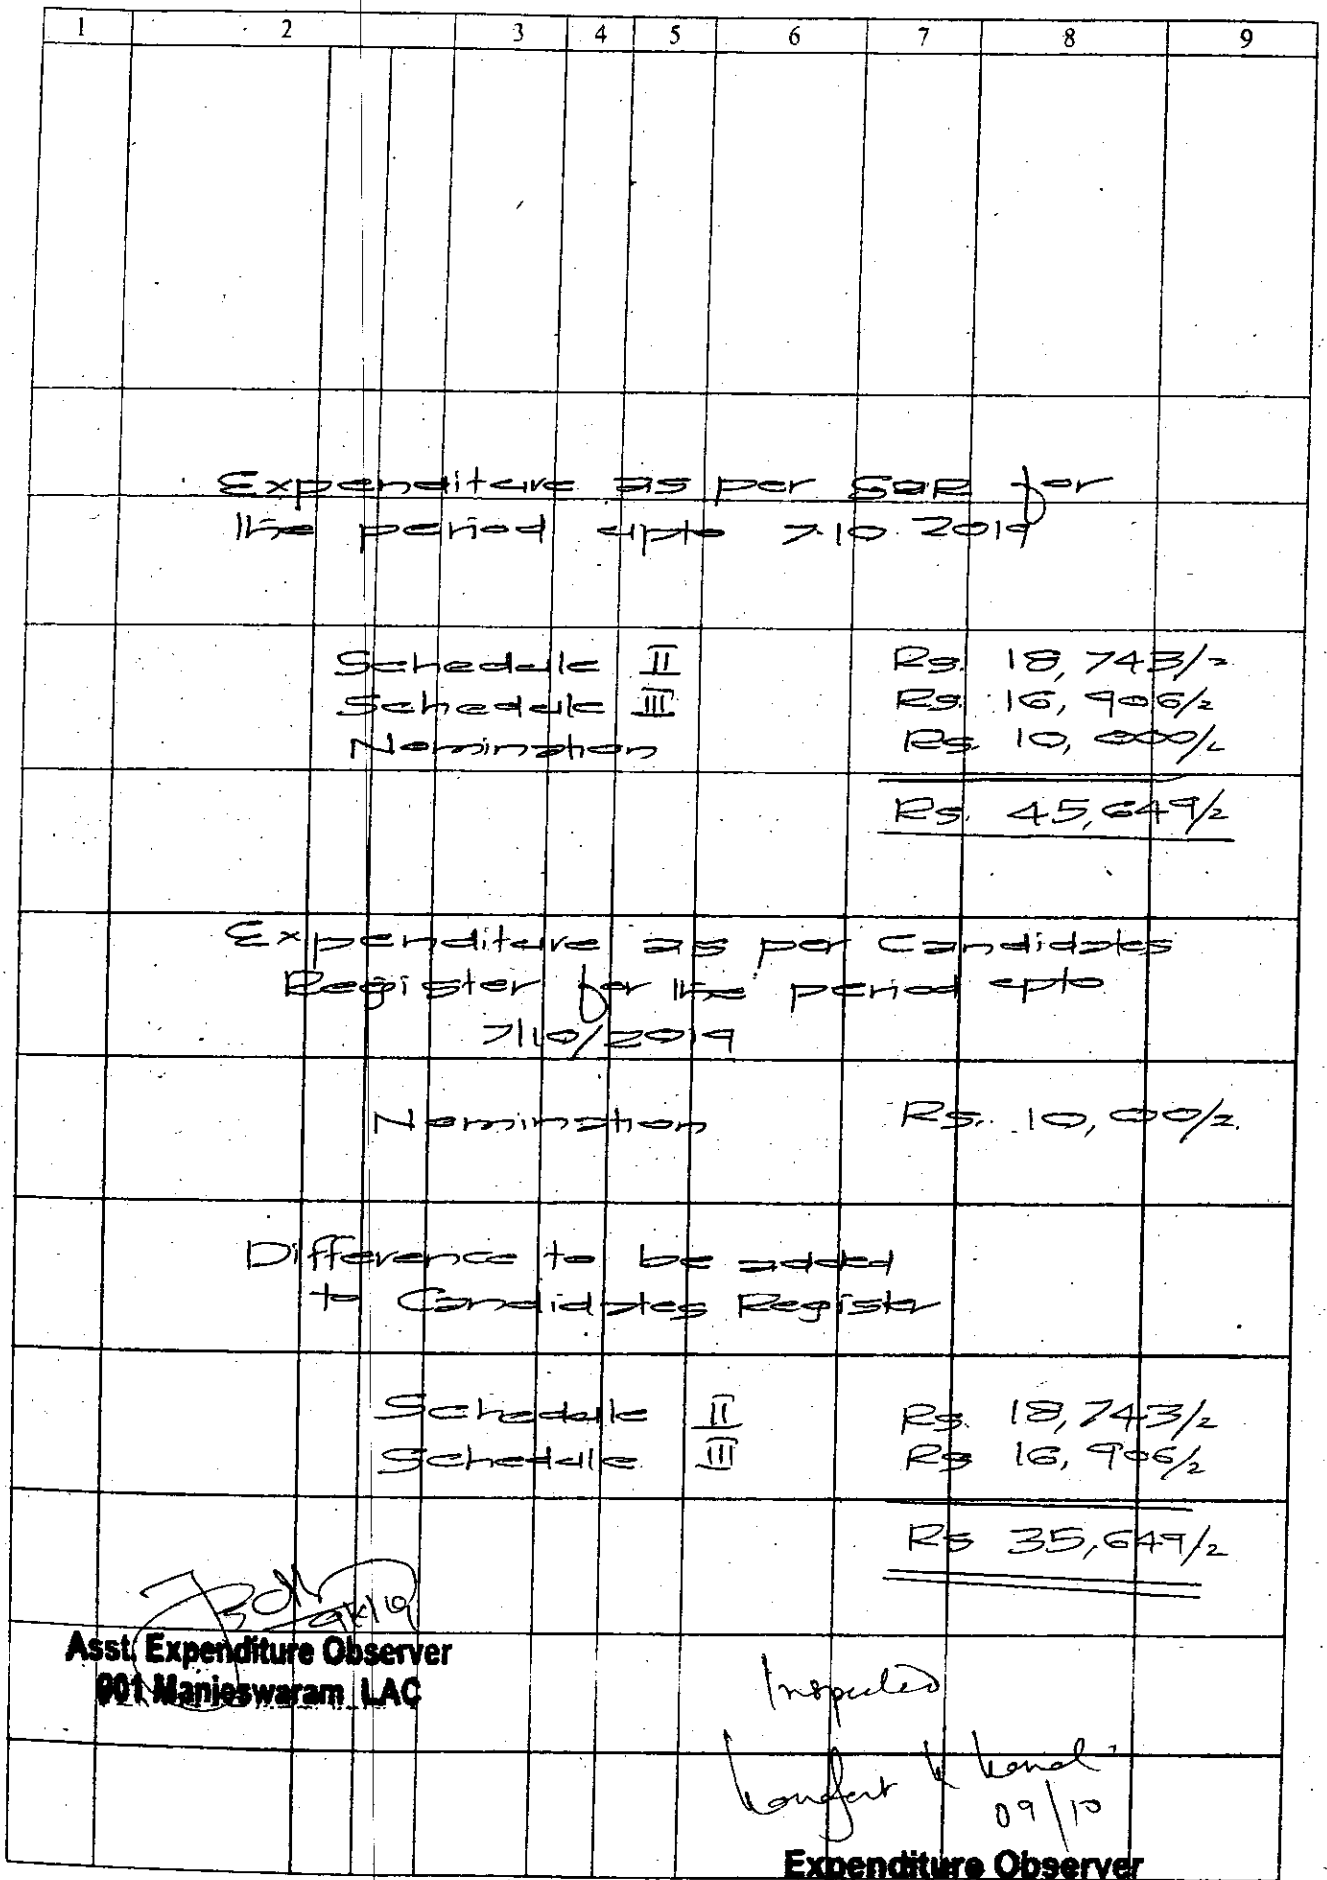 1 2 3 4 5 6 7 8 9
Expenditure as per SOR for
the period upto 7.10.2019
Schedule II Rs. 18,743/2
Schedule III Rs. 16,906/2
Nomination Rs. 10,000/2
Rs. 45,649/2
Expenditure as per Candidates
Register for the period upto
7/10/2019
Nomination Rs. 10,000/2
Difference to be added
to Candidates Register
Schedule II Rs. 18,743/2
Schedule III Rs 16,906/2
Rs 35,649/2
Asst. Expenditure Observer
001 Manjeswaram LAC
Inspected
09/10
Expenditure Observer